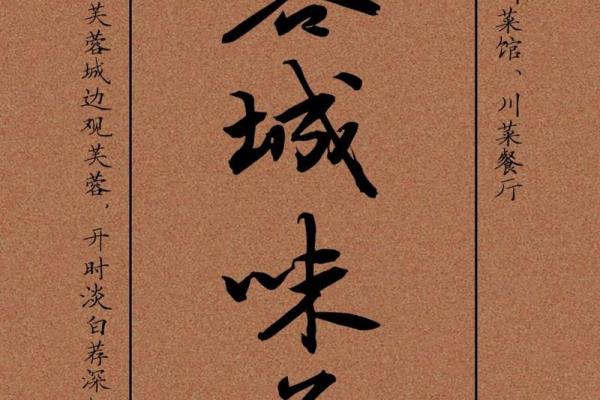 菜馆、川菜餐厅
城味
芙蓉城边观芙蓉，开时淡白荐深